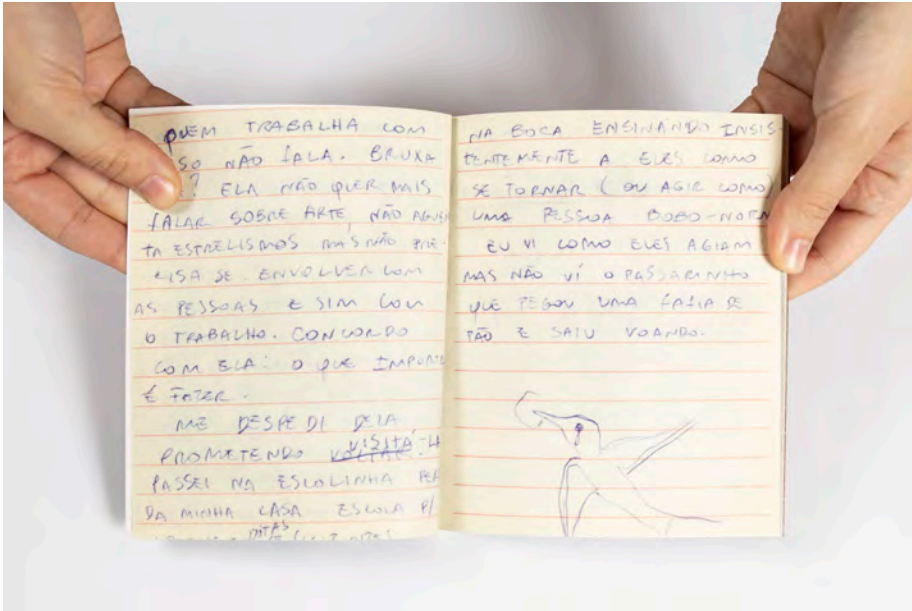 QUEM TRABALHA COM
SO NÃO FALA. BRUXA
? ELA NÃO QUER MAIS
FALAR SOBRE ARTE, NÃO AGUEN
TA ESTRELISMOS MAS NÃO PRE-
CISA SE ENVOLVER COM
AS PESSOAS E SIM COM
O TRABALHO. CONCORDO
COM ELA: O QUE IMPORTA
É FAZER.
ME DESPEDI DELA
PROMETENDO VOLTAR. VISITÁ-L
PASSEI NA ESCOLINHA PER
DA MINHA CASA ESCOLA P/
DITAS
NA BOCA ENSINANDO INSIS-
TENTEMENTE A ELES COMO
SE TORNAR (OU AGIR COMO)
UMA PESSOA BOBO-NORM
EU VI COMO ELES AGIAM
MAS NÃO VI O PASSARINHO
QUE PEGOU UMA FATIA DE
TÃO E SAIU VOANDO.